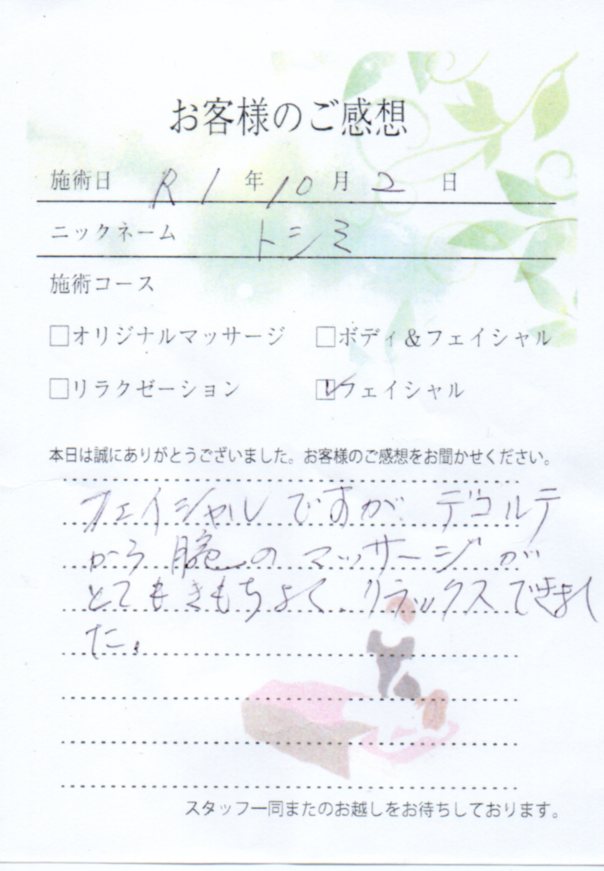 お客様のご感想
施術日 R1年10月2日
ニックネーム トシミ
施術コース
□オリジナルマッサージ □ボディ&フェイシャル
□リラクゼーション ☑フェイシャル
本日は誠にありがとうございました。お客様のご感想をお聞かせください。
フェイシャルですが、デコルテ
から腕のマッサージが
とてもきもちよく、リラックスできまし
た。
スタッフ一同またのお越しをお待ちしております。